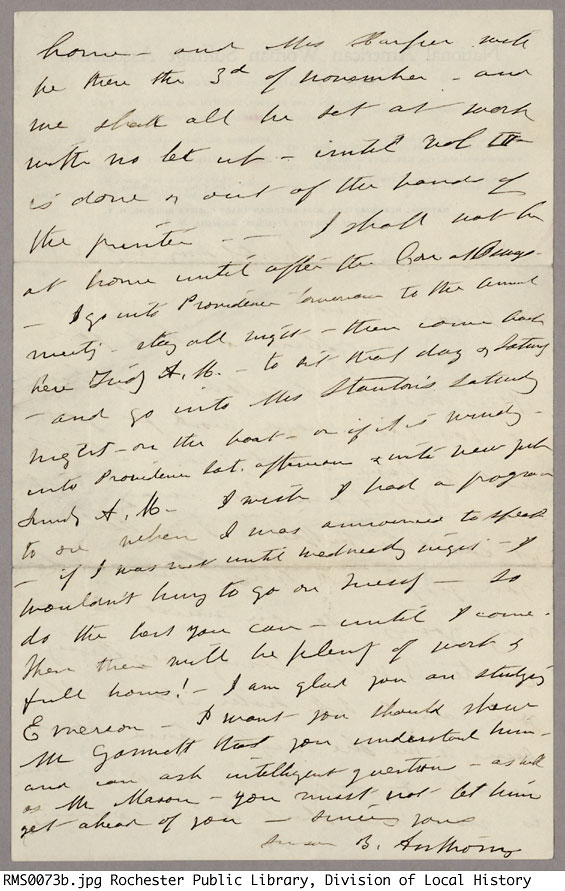 home - and Mrs Harper will
be there the 3d of November - and
we shall all be set at work
with no let up - until Vol III -
is done & out of the hands of
the printer - - I shall not be
at home until after the Con at
- I go into Providence tomorrow to the annual
meeting - stay all night - then come back
here Friday A.M. - to sit that day & Saturday
- and go into Mrs Stanton's Saturday
night - on the boat - or if it is windy -
into Providence Sat. afternoon & into New York
Sunday A.M. I wish I had a program
to see when I was announced to speak
- if I was not until Wednesday night - I
wouldn't hurry to go on Tuesday - So
do the best you can - until I come -
Then there will be plenty of work &
full hours! - I am glad you are studying
Emerson - I want you should show
Mr Gannett that you understand him -
and can ask intelligent question - as well
as Mr Mason - you must not let him
get ahead of you - sincerely yours
Susan B. Anthony
RMS0073b.jpg Rochester Public Library, Division of Local History